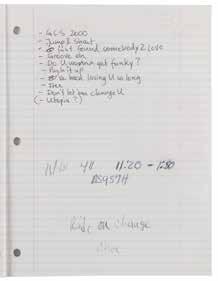 - GCS 2000
- Jump 2 Shout
- Just found somebody 2 love
- Groove on
- Do U wanna get funky?
- Push it up
- so hard losing U so long
- Don't let you change U
(- Utopia?)
N/W 411 11:20 - 1:30
Ride on change